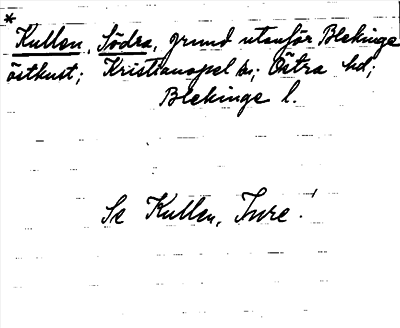 *
Kullen, Södra, grund utanför Blekinge
östkust; Kristianopel sn; Östra hd;
Blekinge l.
Se Kullen, Inre!